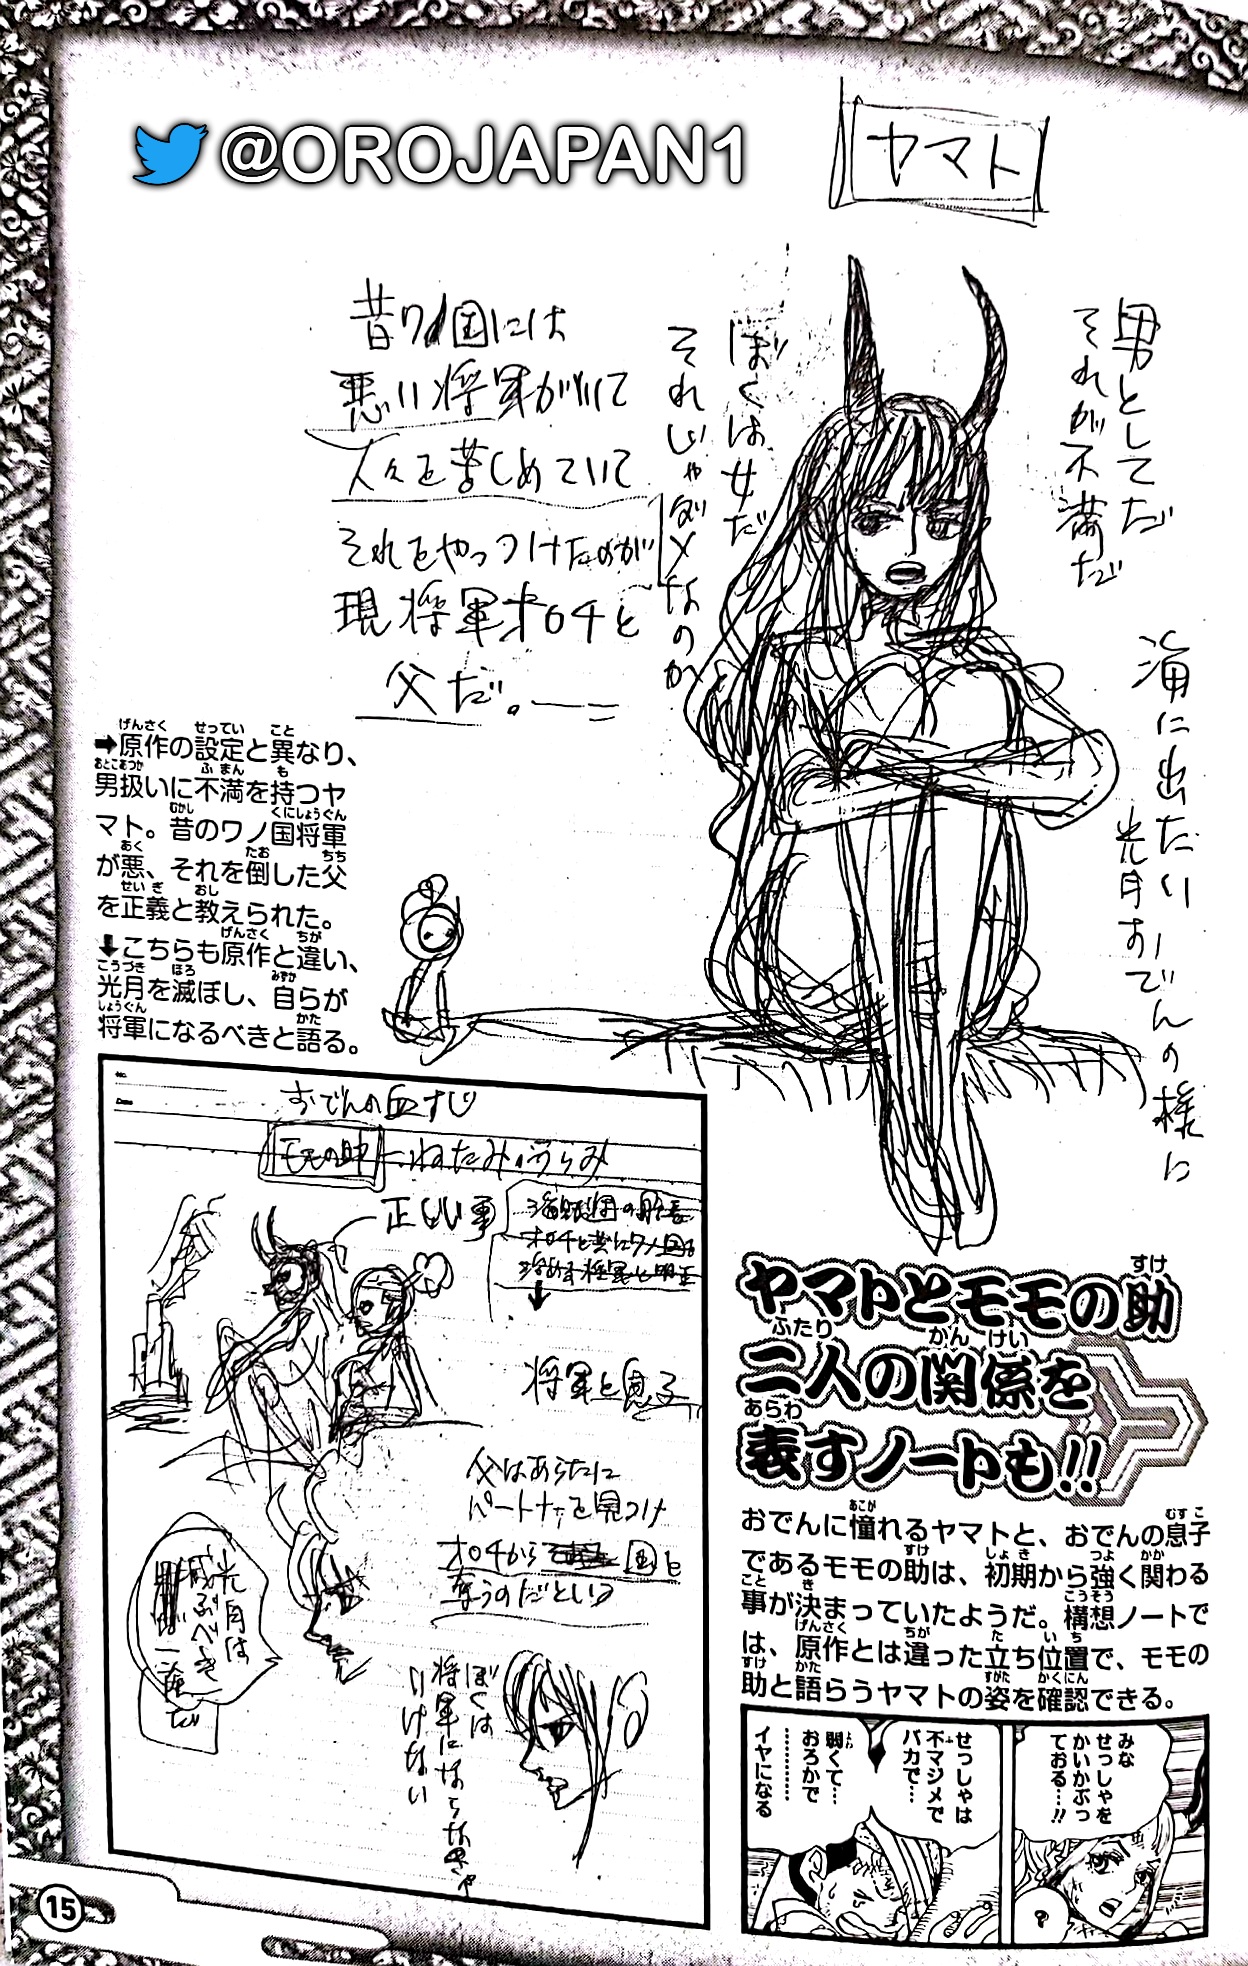 @OROJAPAN1
ヤマト
男としてだ
それが不満だ
海に出たい
光月おでんの様に
ぼくは女だ
それじゃダメなのか
昔ワノ国には
悪い将軍がいて
人々を苦しめていて
それをやっつけたのが
現将軍オロチと
父だ。
➡原作の設定と異なり、
男扱いに不満を持つヤ
マト。昔のワノ国将軍
が悪、それを倒した父
を正義と教えられた。
⬇こちらも原作と違い、
光月を滅ぼし、自らが
将軍になるべきと語る。
おでんの血すじ
モモの助
ねたみ・うらみ
正しい事
将軍と息子
父はあらたに
パートナーを見つけ
オロチから国を
奪うのだという
光月は
滅ぶべき
一族だ
ぼくは
将軍にならなきゃ
いけない
ヤマトとモモの助
二人の関係を
表すノートも!!
おでんに憧れるヤマトと、おでんの息子
であるモモの助は、初期から強く関わる
事が決まっていたようだ。構想ノートで
は、原作とは違った立ち位置で、モモの
助と語らうヤマトの姿を確認できる。
みな
せっしゃを
かいかぶっ
ておる…!!
?
せっしゃは
不マジメで
バカで…
弱くて…
おろかで
…………
イヤになる
15